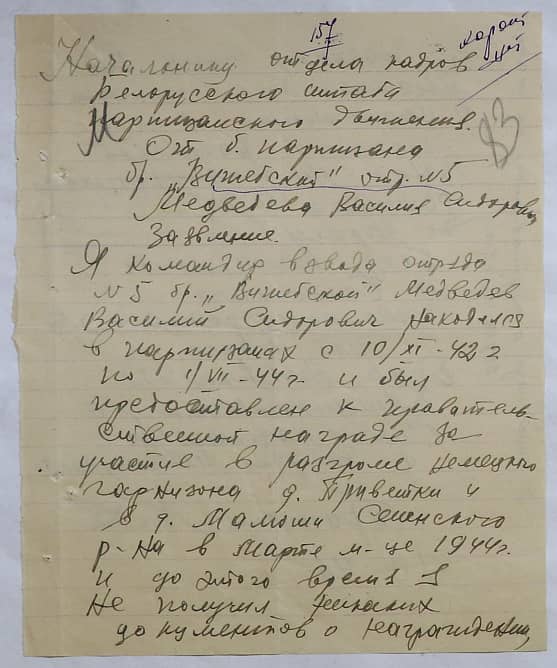 157
Начальнику отдела кадров
Белорусского штаба
Партизанского движения.
От б. партизана
бр. „Витебской" отр. №5
Медведева Василия Сидорович
Заявление.
Я командир взвода отряда
№5 бр. „Витебской" Медведев
Василий Сидорович находился
в партизанах с 10/XI-42 г
по 1/VII-44 г. и был
предоставлен к правитель-
ственной награде за
участие в разгроме немецкого
гарнизона д. Приветки и
в д. Мамоши Сенского
р-на в марте м-це 1944 г.
и до этого время я
не получил никаких
документов о награждении,